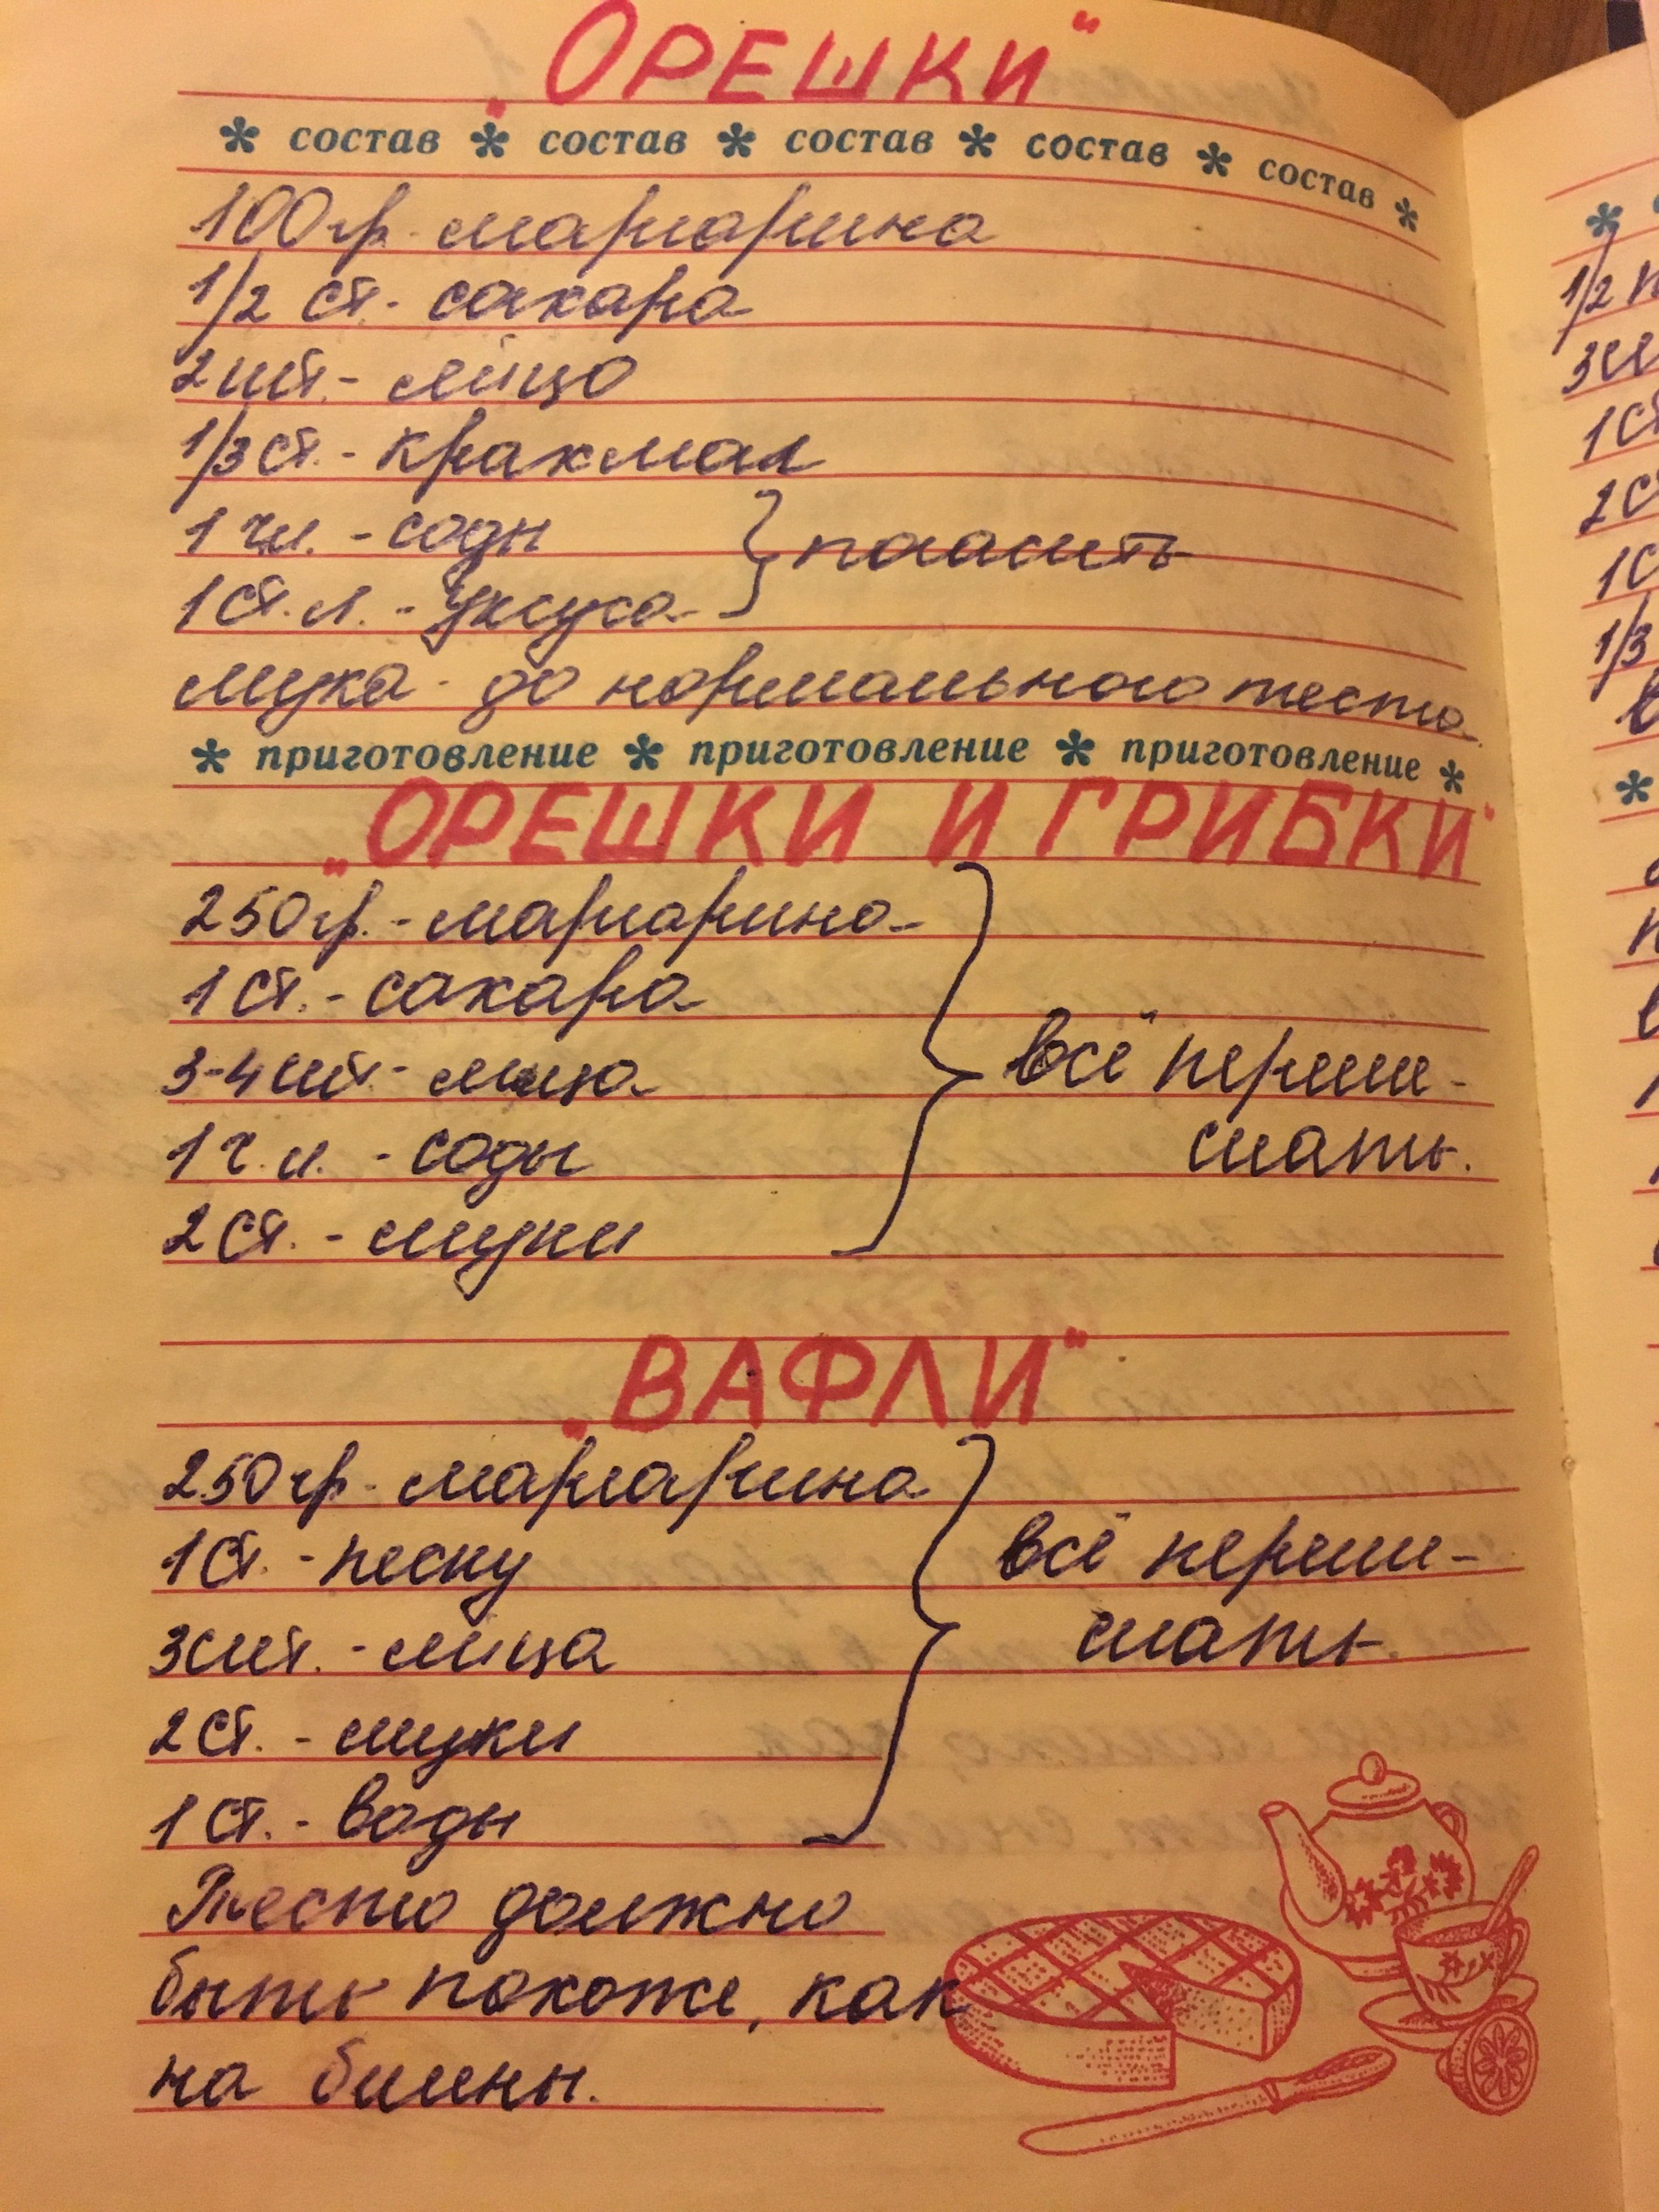 „ОРЕШКИ"
* состав * состав * состав * состав * состав *
100 гр. маргарина
1/2 ст. - сахара
2 шт. - яйцо
1/3 ст. - крахмал
1 ч.л. - соды } погасить
1 ст. л. - уксуса
мука - до нормального теста.
* приготовление * приготовление * приготовление *
„ОРЕШКИ И ГРИБКИ"
250 гр. - маргарина
1 ст. - сахара
3-4 шт. - яйца
1 ч. л. - соды
2 ст. - муки
всё переме-
шать.
„ВАФЛИ"
250 гр. - маргарина
1 ст. - песку
3 шт. - яйца
2 ст. - муки
1 ст. - воды
всё переме-
шать.
Тесто должно
быть похоже, как
на блины.
1/2
1 ст
1/3